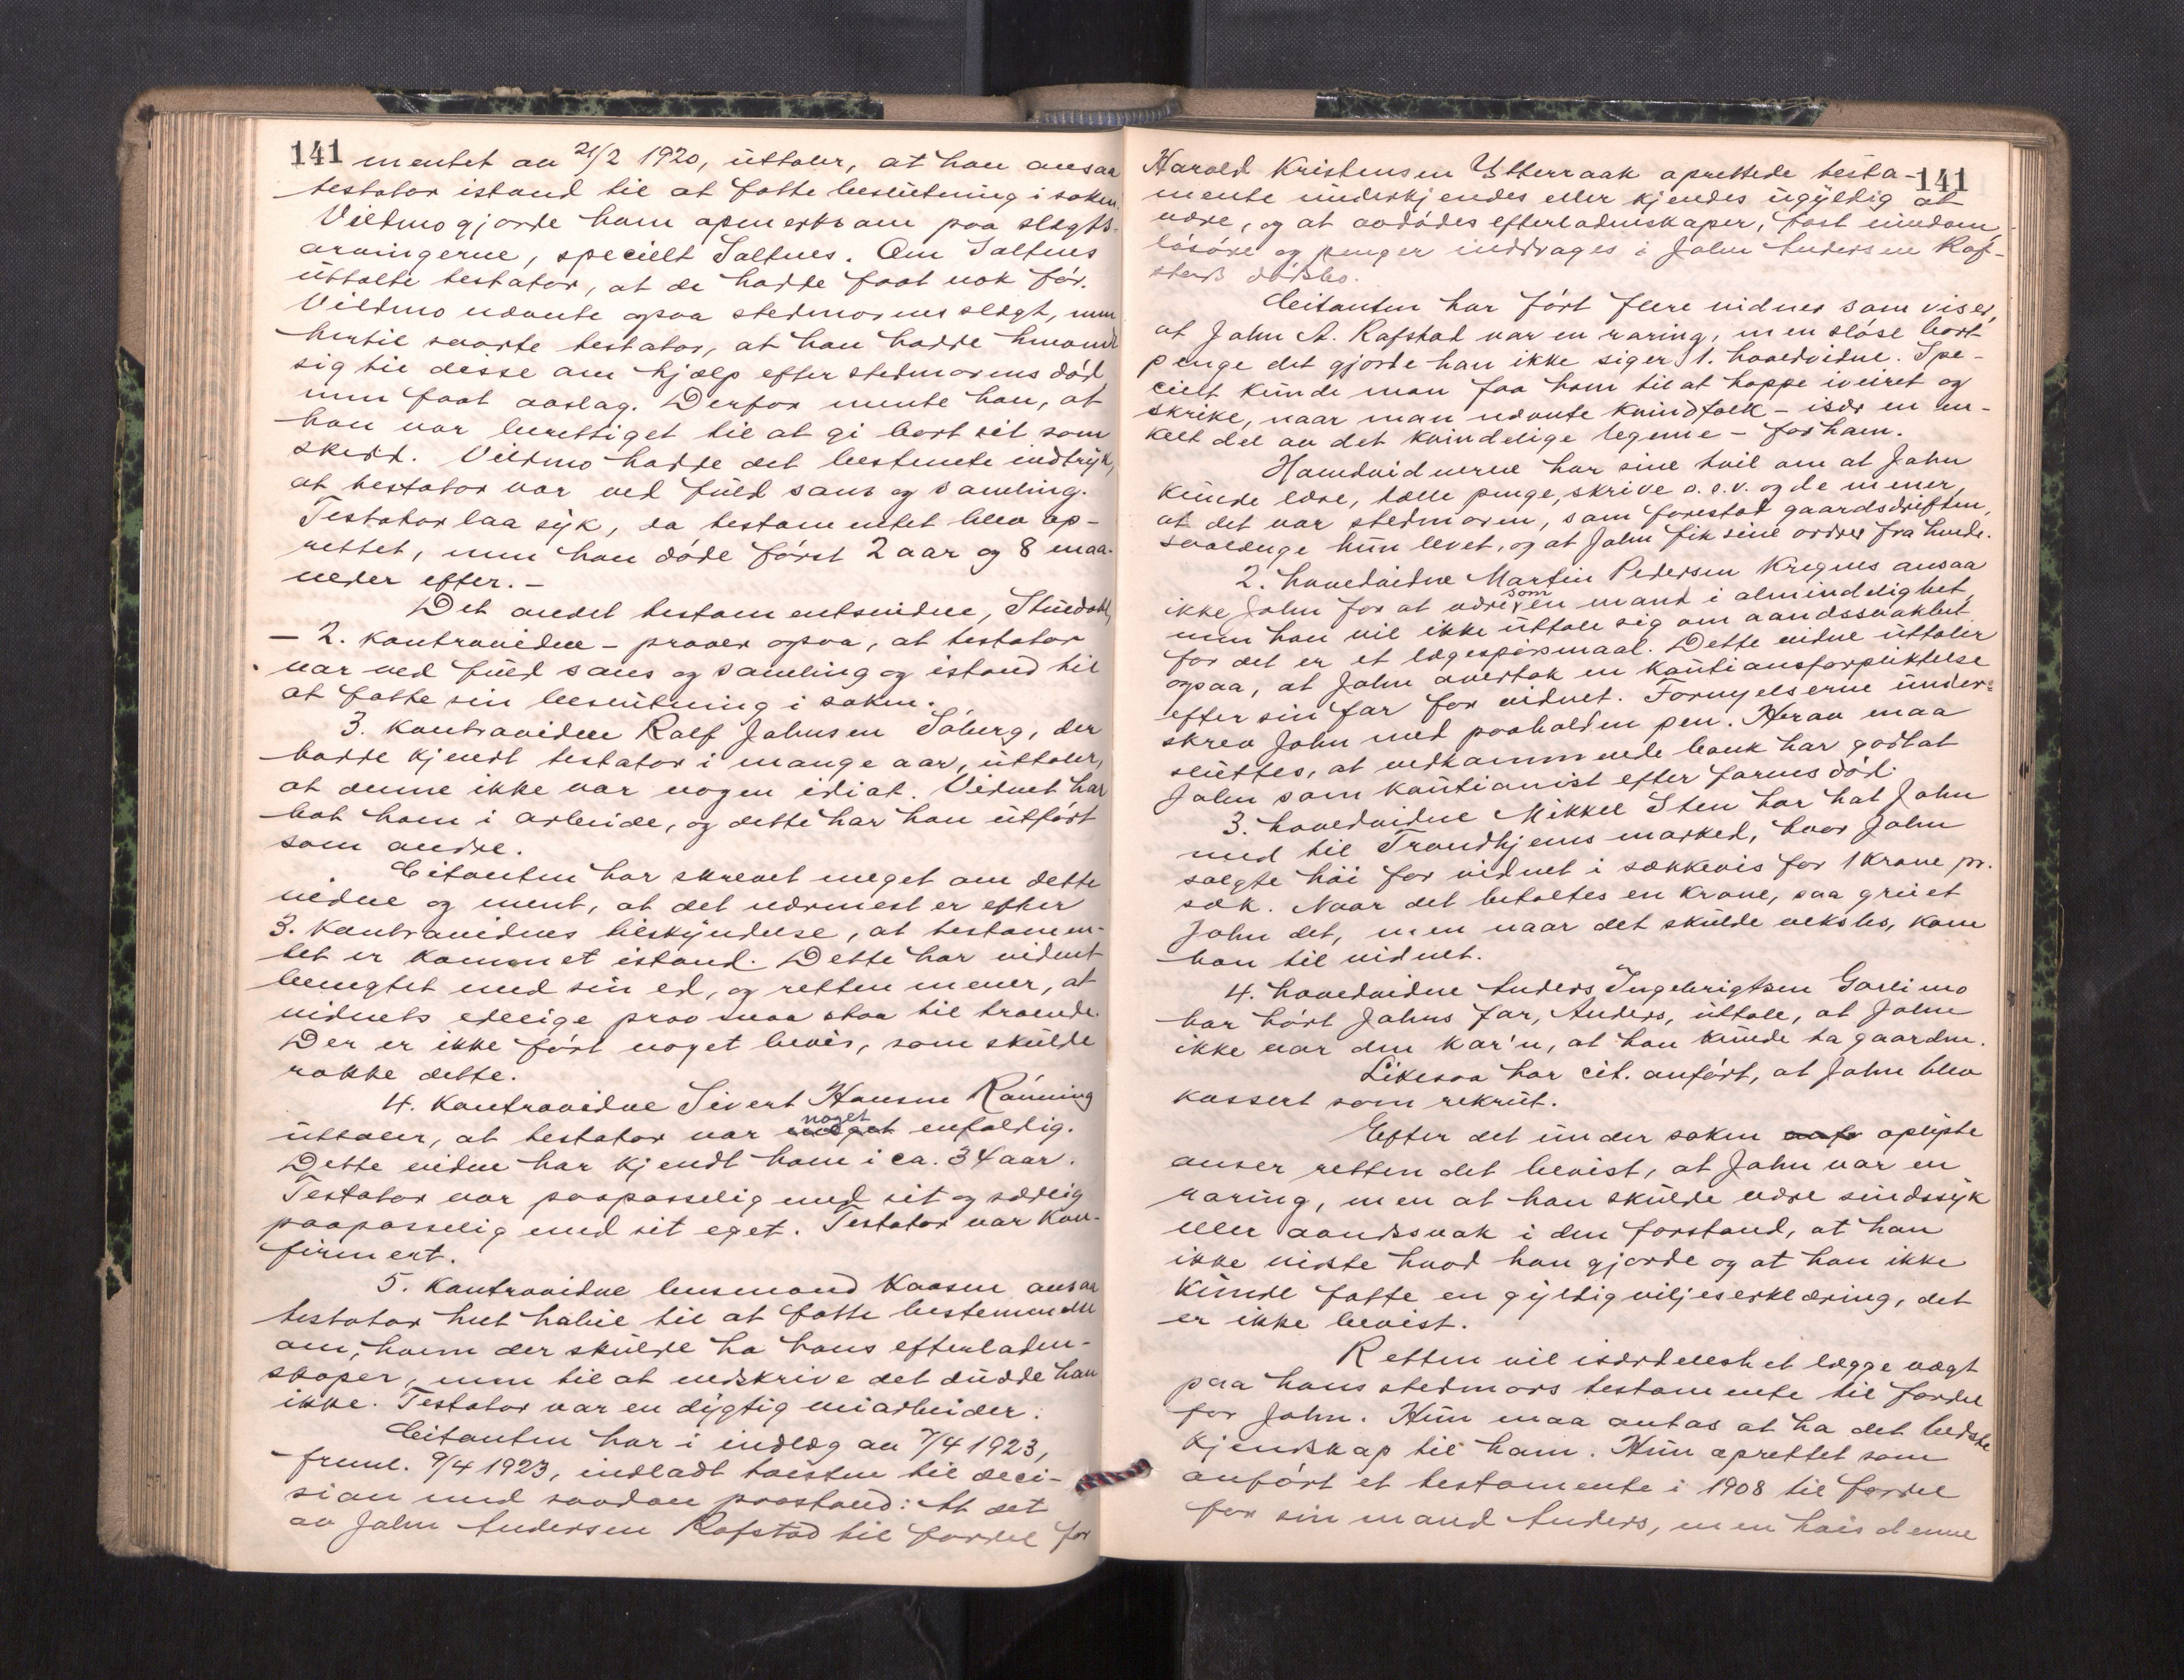 141
mentet av 21/2 1920, uttaler, at han ansaa
testator istand til at fatte beslutning i saken.
Vildmo gjorde ham opmerksom paa slegts-
arvingerne, specielt Saltnes. Om Saltnes
uttalte testator, at de hadde faat nok før.
Vildmo nævnte ogsaa stedmorens slegt, men
hertil svarte testator, at han hadde henvendt
sig til disse om hjælp efter stedmorens død
men faat avslag. Derfor mente han, at
han var berettiget til at gi bort sit som
skedd. Vildmo hadde det bestemte indtryk,
at testator var ved fuld sans og samling.
Testator laa syk, da testamentet blev op-
rettet, men han døde først 2 aar og 8 maa-
neder efter.-
Det andet testamentsvidne, Stuedahl,
- 2. kontravidne - prover ogsaa, at testator
var ved fuld sans og samling og istand til
at fatte sin beslutning i saken.
3. kontravidne Ralf Johnsen Søberg, der
hadde kjendt testator i mange aar, uttaler,
at denne ikke var nogen idiot. Vidnet har
hat ham i arbeide, og dette har han utført
som andre.
Citanten har skrevet meget om dette
vidne og ment, at det nærmest er efter
3. kontravidnes tilskyndelse, at testamen-
tet er kommet istand. Dette har vidnet
benegtet med sin ed, og retten mener, at
vidnets edelige prov maa staa til troende.
Der er ikke ført noget bevis, som skulde
rokke dette.
4. kontravidne Sivert Hansen Rønning
uttaler, at testator var noget enfoldig.
Dette vidne har kjendt ham i ca. 34 aar.
Testator var paapasselig med sit og særlig
paapasselig med sit eget. Testator var kon-
firmert.
5. kontravidne lensmand Kaasen ansaa
testator helt habil til at fatte bestemmelse
om, hvem der skulde ha hans efterladen-
skaper, men til at nedskrive det dudde han
ikke. Testator var en dygtig uiarbeider.
Citanten har i indlæg av 7/4 1923,
freml. 9/4 1923, indladt tvisten til deci-
sion med saadan paastand: At det
av John Andersen Rafstad til fordel for
141
Harald Kristensen Ytterraak oprettede testa-
mente underkjendes eller kjendes ugyldig at
være, og at avdødes efterladenskaper, fast eiendom,
løsøre og penger inddrages i John Andersen Raf-
stads dødsbo.
Citanten har ført flere vidner som viser,
at John A. Rafstad var en raring, men sløse bort
penge det gjorde han ikke siger 1. hovedvidne. Spe-
cielt kunde man faa ham til at hoppe iveiret og
skrike, naar man nævnte kvindfolk - især en en-
kelt del av det kvindelige legeme - for ham.
Hovedvidnerne har sine tvil om at John
kunde læse, tælle penge, skrive o.s.v. og de mener,
at det var stedmoren, som forestod gaardsdriften,
saalænge hun levet, og at John fik sine ordrer fra hende.
2. hovedvidne Martin Pedersen Krignes ansaa
ikke John for at være som en mand i almindelighet,
men han vil ikke uttale sig om aandssvakhet
for det er et lægespørsmaal. Dette vidne uttaler
ogsaa, at John overtok en kautionsforpliktelse
efter sin far for vidnet. Fornyelserne under-
skrev John med paaholden pen. Herav maa
sluttes, at vedkommende bank har godtat
John som kautionist efter farens død.
3. hovedvidne Mikkel Sten har hat John
med til Trondhjems marked, hvor John
solgte høi for vidnet i sækkevis for 1 krone pr.
sæk. Naar det betaltes en krone, saa greiet
John det, men naar det skulde veksles, kom
han til vidnet.
4. hovedvidne Anders Ingebrigtsen Garlimo
har hørt Johns far, Anders, uttale, at John
ikke var den kar'n, at han kunde ta gaarden.
Likesaa har cit. anført, at John blev
kassert som rekrut.
Efter det under saken oplyste
anser retten det bevist, at John var en
raring, men at han skulde være sindssyk
eller aandssvak i den forstand, at han
ikke visste hvad han gjorde og at han ikke
kunde fatte en gyldig viljeserklæring, det
er ikke bevist.
Retten vil isærdeleshet lægge vægt
paa hans stedmors testamente til fordel
for John. Hun maa antas at ha det bedste
kjendskap til ham. Hun oprettet som
anført et testamente i 1908 til fordel
for sin mand Anders, men hvis denne